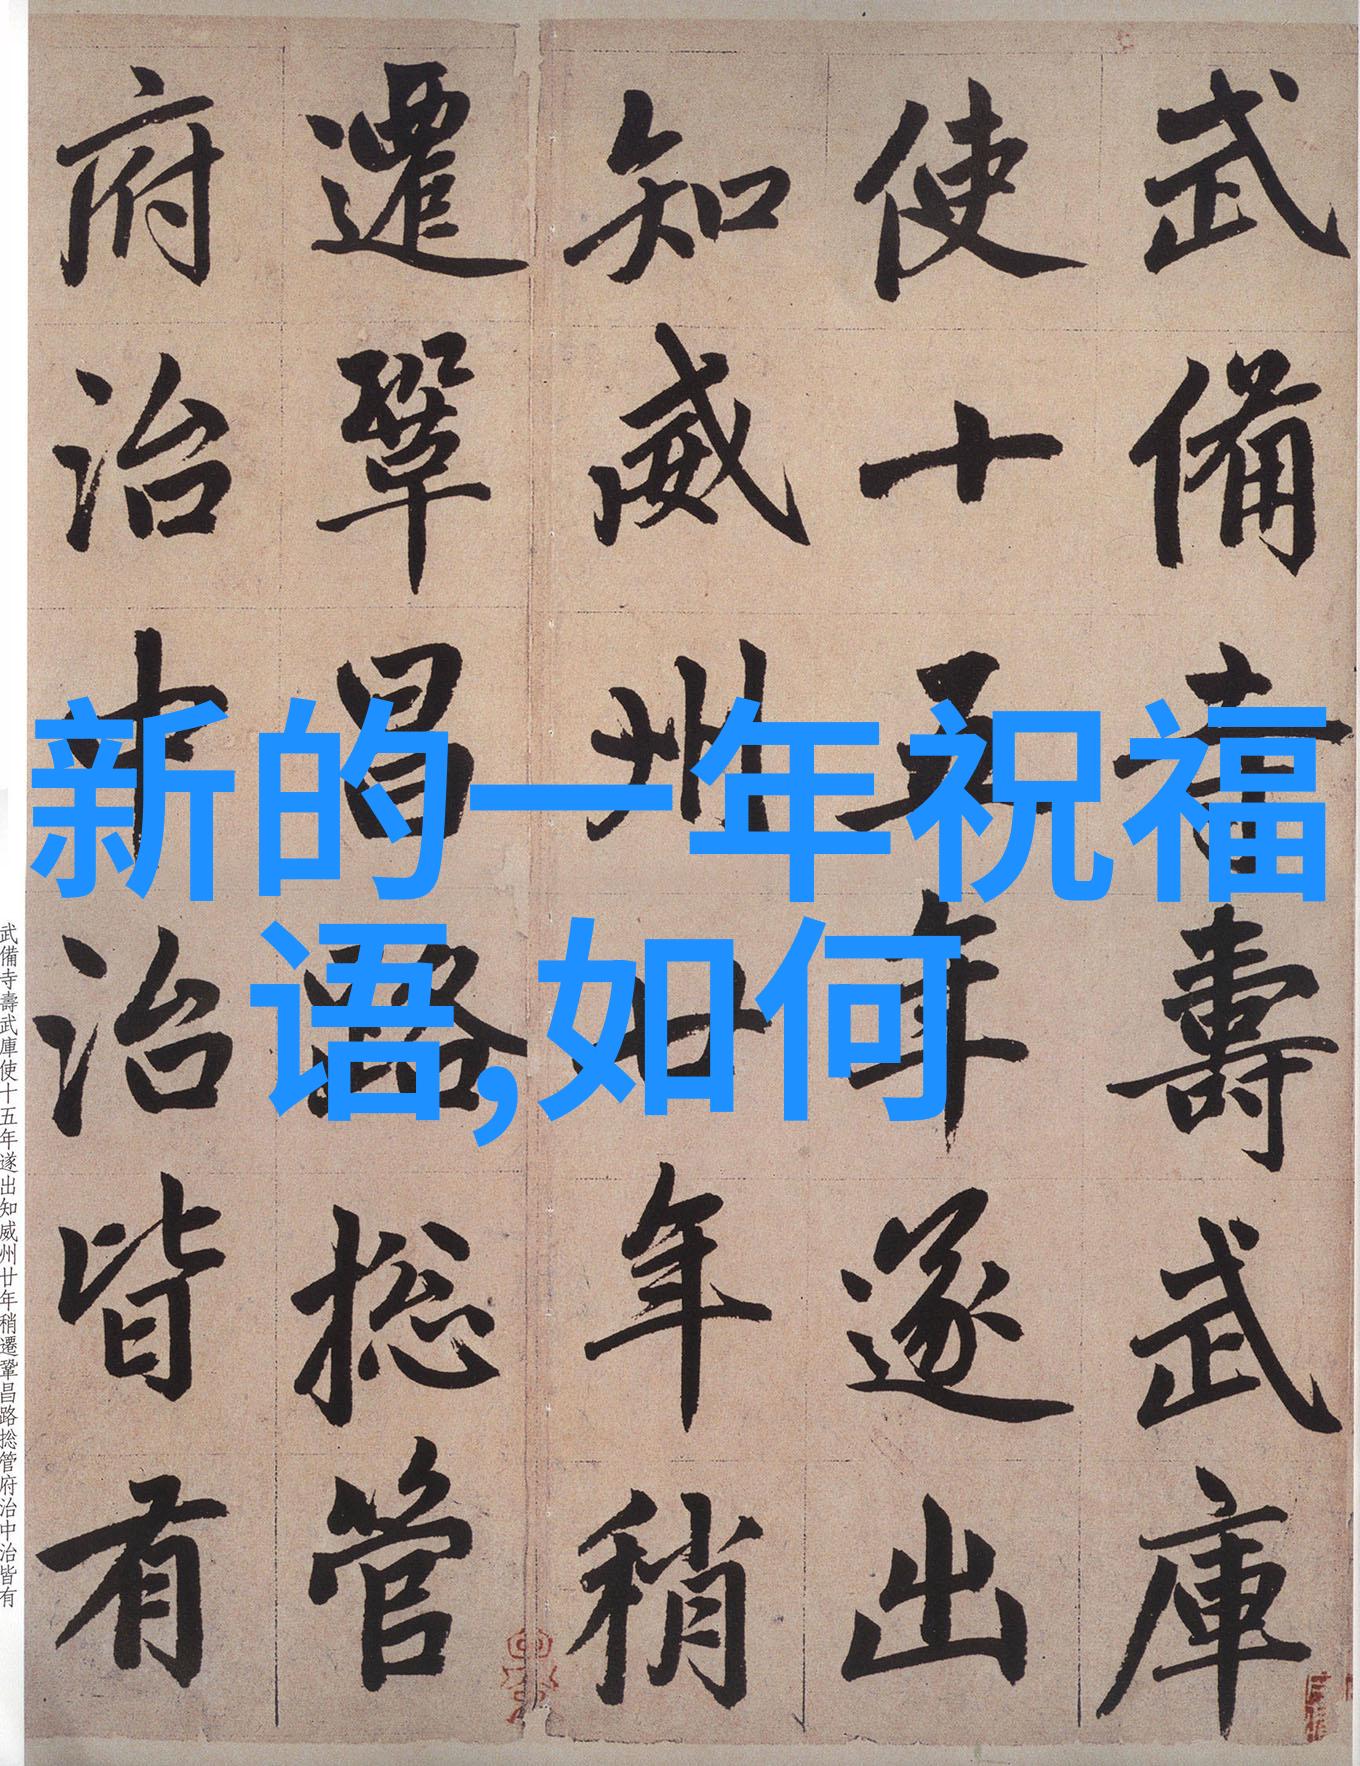 武備寺壽武庫
使十五年遂出
知威州廿年稍
遷鞏昌路捴管
府治中治皆有
新的一年祝福
语,如何
武備寺壽武庫使十五年遂出知威州廿年稍遷鞏昌路捴管府治中治皆有